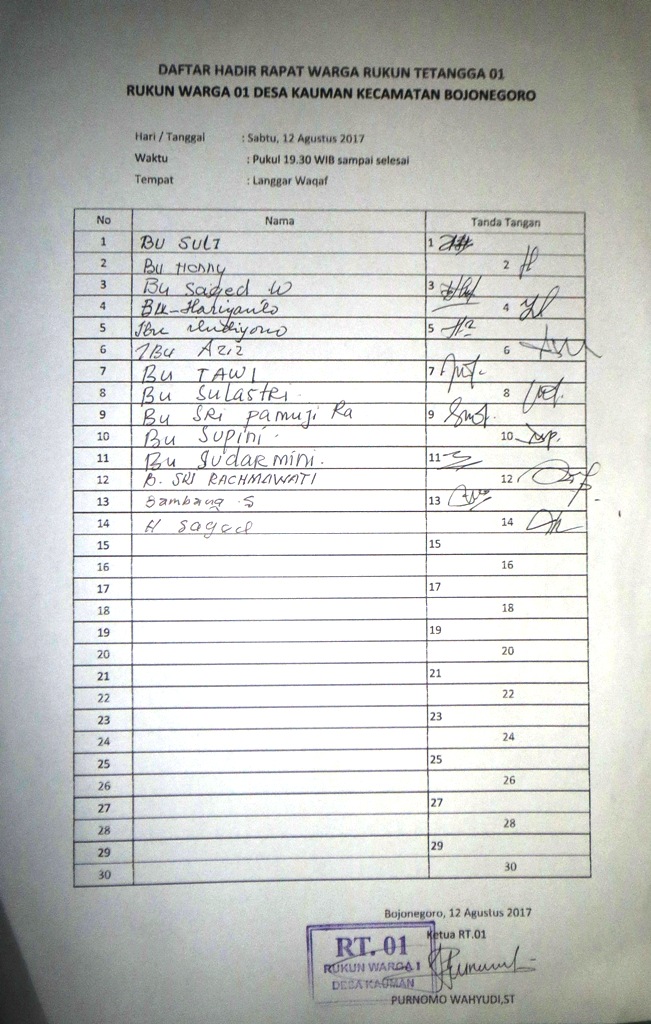 DAFTAR HADIR RAPAT WARGA RUKUN TETANGGA 01
RUKUN WARGA 01 DESA KAUMAN KECAMATAN BOJONEGORO
Hari / Tanggal : Sabtu, 12 Agustus 2017
Waktu : Pukul 19.30 WIB sampai selesai
Tempat : Langgar Waqaf
No Nama Tanda Tangan
1 BU SULI 1
2 Bu Honny 2
3 Bu Sayed W 3
4 Hariyanto 4
5 5
6 IBu AZIZ 6
7 Bu TAWI 7
8 Bu Sulastri 8
9 Bu SRi pamuji Ra 9
10 Bu Supini 10
11 Bu Sudarmini. 11
12 B. SRI RACHMAWATI 12
13 Bambang S 13
14 H 14
15 15
16 16
17 17
18 18
19 19
20 20
21 21
22 22
23 23
24 24
25 25
26 26
27 27
28 28
29 29
30 30
Bojonegoro, 12 Agustus 2017
Ketua RT.01
RT. 01
RUKUN WARGA I
DESA KAUMAN
PURNOMO WAHYUDI,ST